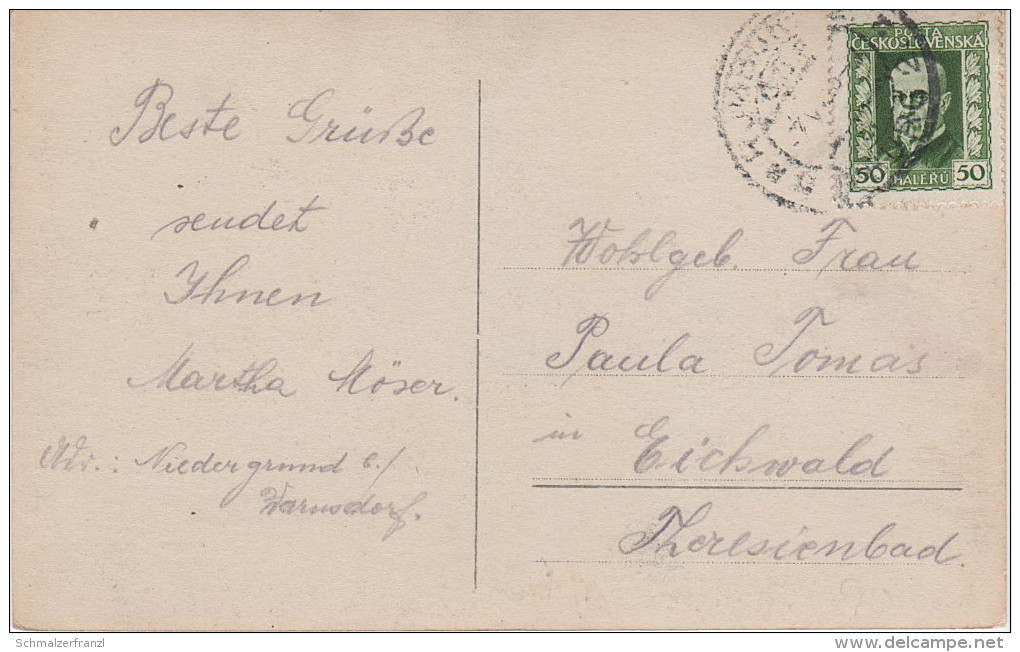 Beste Grüße
sendet
Ihnen
Martha Möser.
Adr.: Niedergrund b./
Warnsdorf.
POŠTA
ČESKOSLOVENSKÁ
50 HALÉŘŮ 50
Wohlgeb. Frau
Paula Tomas
in Eichwald
Theresienbad.
Schmalzerfranzl
delcampe.net